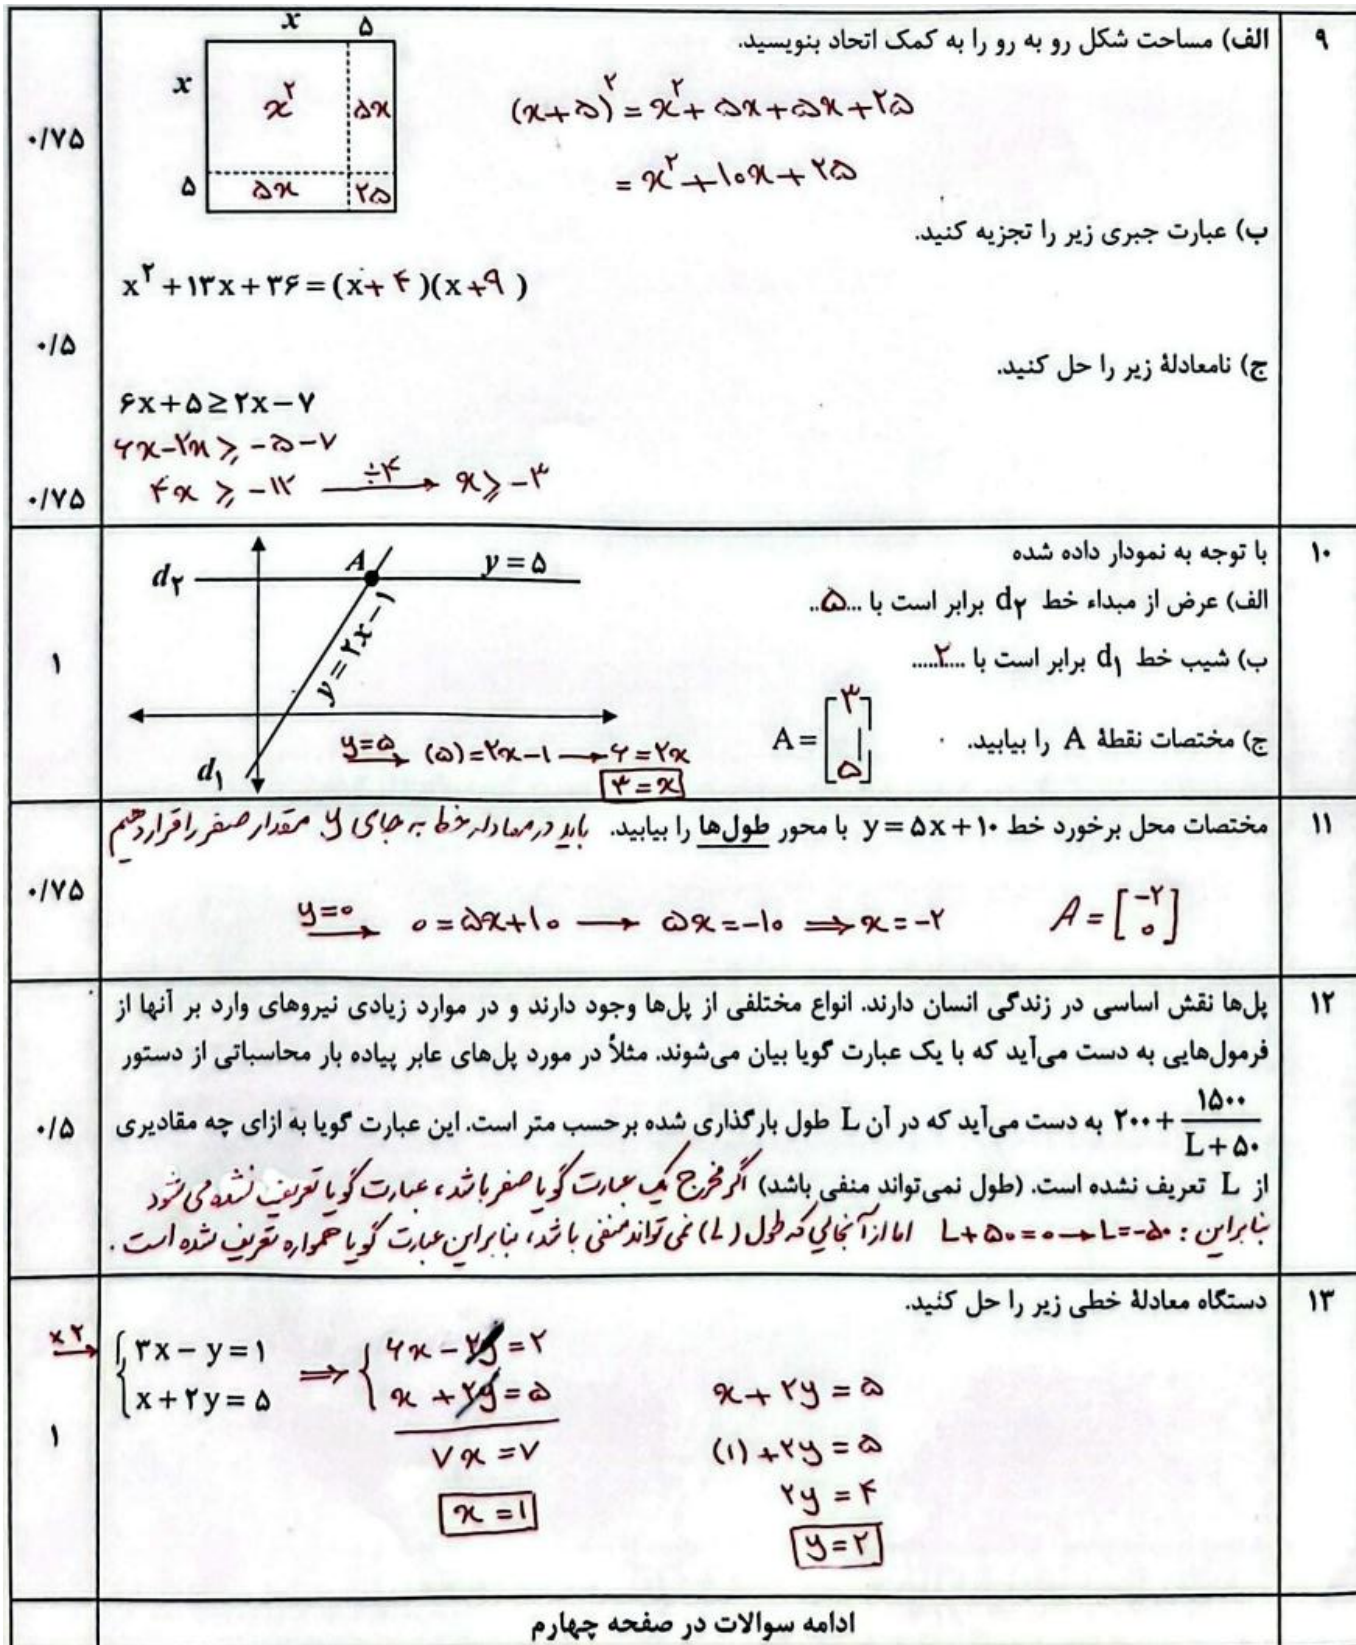 ۹
الف) مساحت شکل رو به رو را به کمک اتحاد بنویسید.
x ۵
x x^۲ ۵x
۵ ۵x ۲۵
(x+۵)^۲ = x^۲ + ۵x + ۵x + ۲۵
= x^۲ + ۱۰x + ۲۵
۰/۷۵
ب) عبارت جبری زیر را تجزیه کنید.
x^۲ + ۱۳x + ۳۶ = (x + ۴)(x + ۹)
۰/۵
ج) نامعادلهٔ زیر را حل کنید.
۶x + ۵ ≥ ۲x − ۷
۶x − ۲x ≥ −۵ − ۷
۴x ≥ −۱۲ ÷۴ → x ≥ −۳
۰/۷۵
۱۰
با توجه به نمودار داده شده
الف) عرض از مبداء خط d۲ برابر است با ...۵..
ب) شیب خط d۱ برابر است با ....۲.....
ج) مختصات نقطهٔ A را بیابید. A = [۳ ۵]
d۲ A y = ۵
y = ۲x − ۱
d۱
y=۵ → (۵) = ۲x − ۱ → ۶ = ۲x
۳ = x
۱
۱۱
مختصات محل برخورد خط y = ۵x + ۱۰ با محور طول‌ها را بیابید. باید در معادله خط به جای y مقدار صفر را قرار دهیم
y=۰ → ۰ = ۵x + ۱۰ → ۵x = −۱۰ ⟹ x = −۲ A = [−۲ ۰]
۰/۷۵
۱۲
پل‌ها نقش اساسی در زندگی انسان دارند. انواع مختلفی از پل‌ها وجود دارند و در موارد زیادی نیروهای وارد بر آنها از
فرمول‌هایی به دست می‌آید که با یک عبارت گویا بیان می‌شوند. مثلاً در مورد پل‌های عابر پیاده بار محاسباتی از دستور
۲۰۰ + ۱۵۰۰/(L + ۵۰) به دست می‌آید که در آن L طول بارگذاری شده برحسب متر است. این عبارت گویا به ازای چه مقادیری
از L تعریف نشده است. (طول نمی‌تواند منفی باشد) اگر مخرج یک عبارت گویا صفر باشد، عبارت گویا تعریف نشده می شود
بنابراین : L + ۵۰ = ۰ → L = −۵۰ اما از آنجایی که طول (L) نمی تواند منفی باشد، بنابراین عبارت گویا همواره تعریف شده است.
۰/۵
۱۳
دستگاه معادلهٔ خطی زیر را حل کنید.
×۲ → { ۳x − y = ۱ ⟹ { ۶x − ۲y = ۲
x + ۲y = ۵ x + ۲y = ۵
۷x = ۷
x = ۱
x + ۲y = ۵
(۱) + ۲y = ۵
۲y = ۴
y = ۲
۱
ادامه سوالات در صفحه چهارم